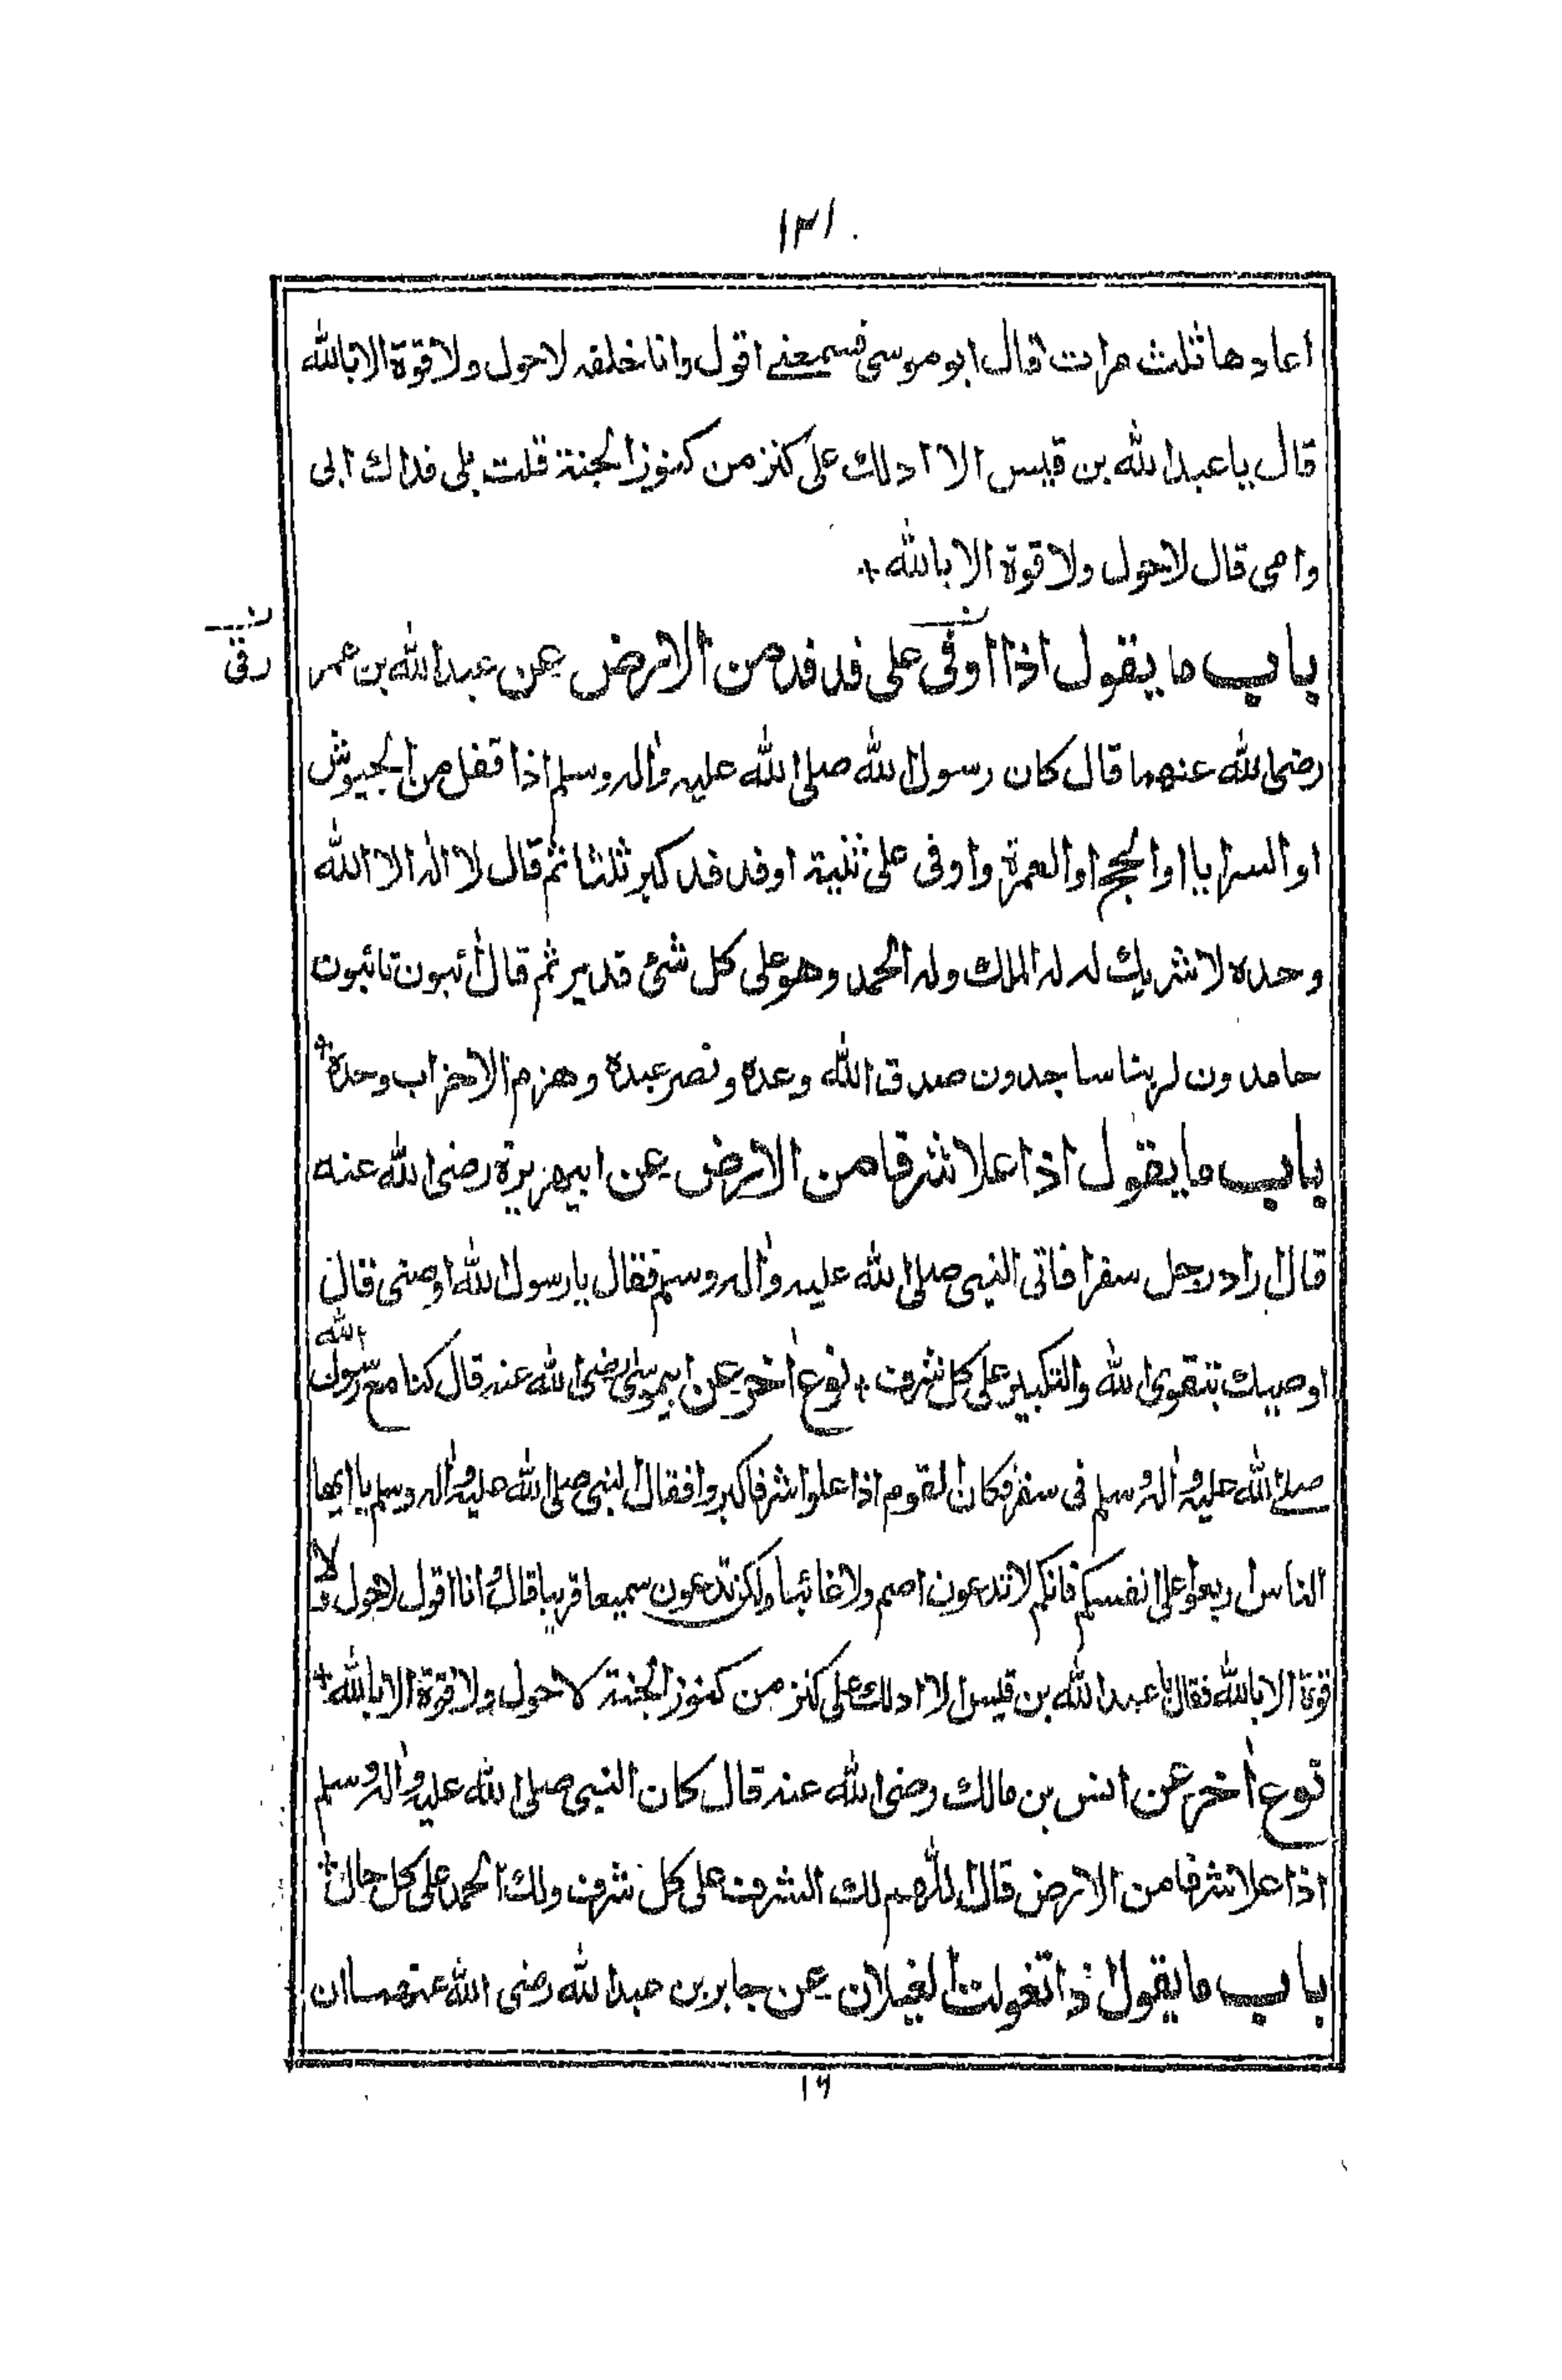 ١٣١
اعادها ثلث مرات قال ابو موسى فسمعني اقول وانا خلفه لاحول ولا قوة الا بالله
قال يا عبد الله بن قيس الا ادلك على كنز من كنوز الجنة قلت بلى فداك ابى
وامى قال لاحول ولا قوة الا بالله +
باب ما يقول اذا اوفى على فدفد من الارض عن عبد الله بن عمر
رقى
رضى الله عنهما قال كان رسول الله صلى الله عليه واٰله وسلم اذا قفل من الجيوش
او السرايا او الحج او العمرة واوفى على ثنية او فدفد كبر ثلثا ثم قال لا اله الا الله
وحده لا شريك له له الملك وله الحمد وهو على كل شئ قدير ثم قال اٰئبون تائبون
حامدون لربنا ساجدون صدق الله وعده ونصر عبده وهزم الاحزاب وحده +
باب ما يقول اذا علا شرفا من الارض عن ابيهريرة رضى الله عنه
قال اراد رجل سفرا فاتى النبى صلى الله عليه واٰله وسلم فقال يا رسول الله اوصنى قال
اوصيك بتقوى الله والتكبير على كل شرف + نوع اٰخر عن ابيموسى رضى الله عنه قال كنا مع رسول الله
صلى الله عليه واٰله وسلم فى سفر فكان القوم اذا علوا شرفا كبروا فقال النبى صلى الله عليه واٰله وسلم يا ايها
الناس اربعوا على انفسكم فانكم لا تدعون اصم ولا غائبا ولكن تدعون سميعا قريبا قال وانا اقول لاحول ولا
قوة الا بالله فقال يا عبد الله بن قيس الا ادلك على كنز من كنوز الجنة لاحول ولا قوة الا بالله +
نوع اٰخر عن انس بن مالك رضى الله عنه قال كان النبى صلى الله عليه واٰله وسلم
اذا علا شرفا من الارض قال اللّٰهم لك الشرف على كل شرف ولك الحمد على كل حال +
باب ما يقول اذا تغولت الغيلان عن جابر بن عبد الله رضى الله عنهما ان
١٦